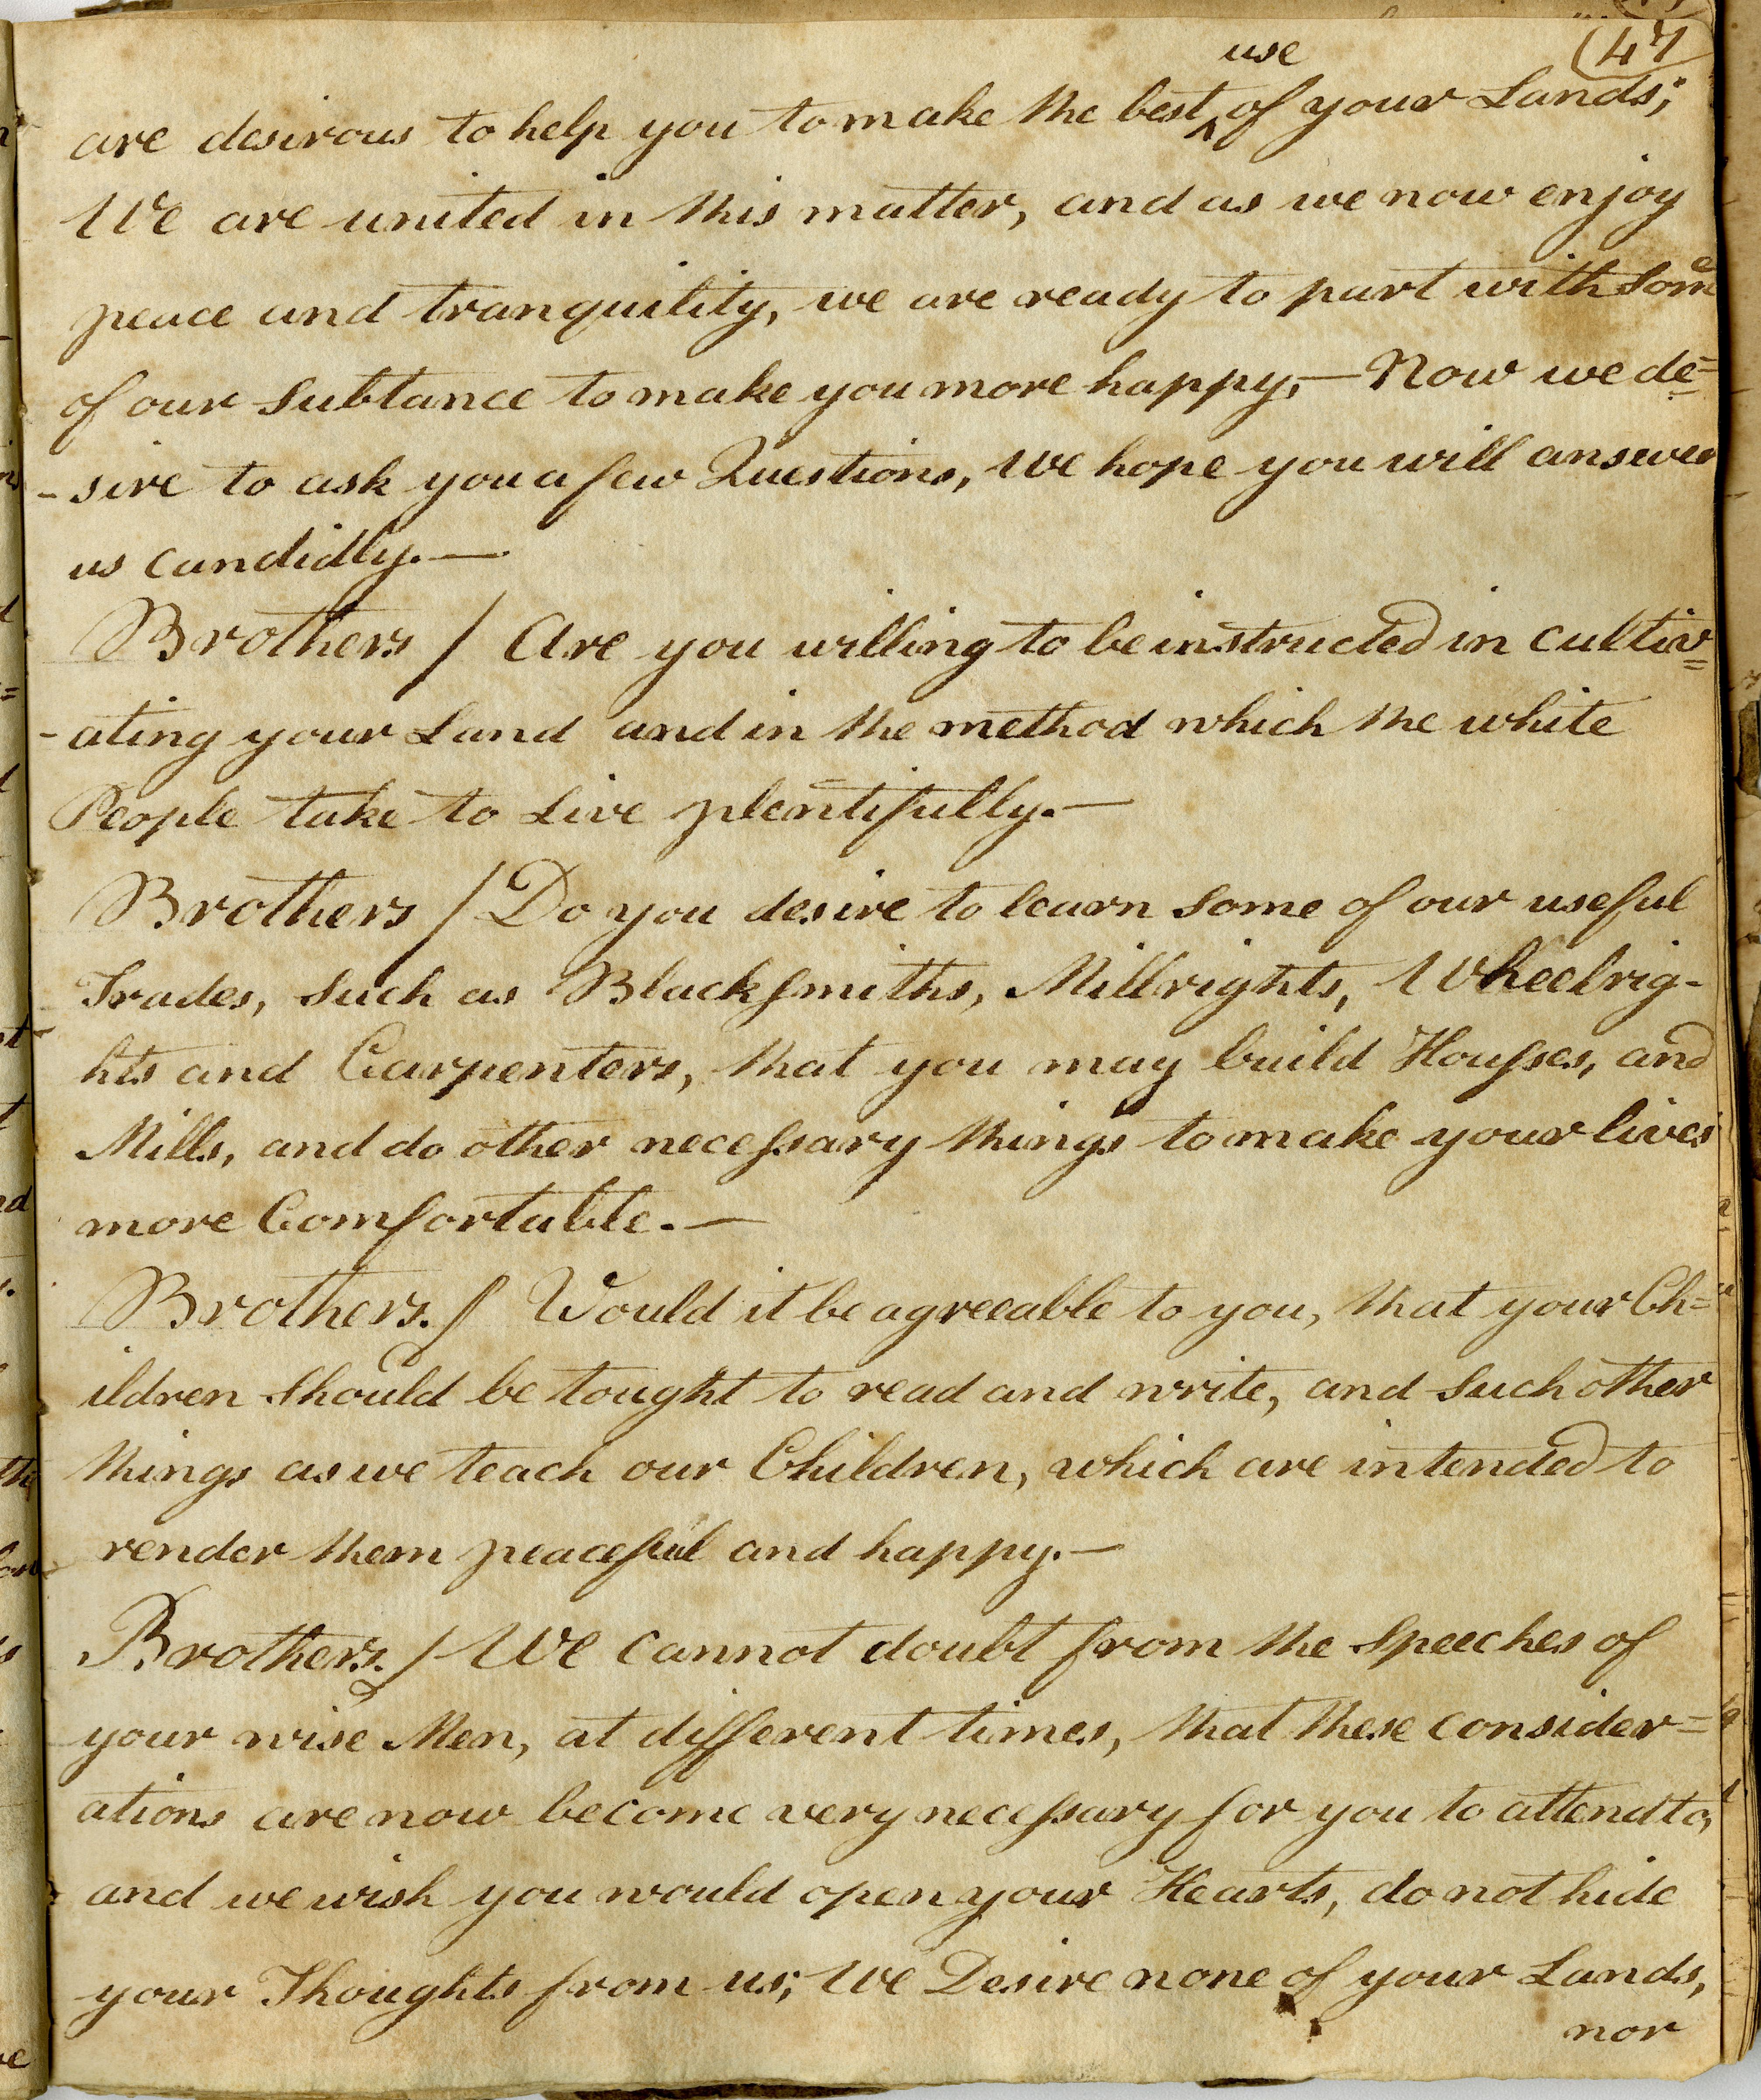 (47
use
are desirous to help you to make the best ‸ of your Lands;
We are united in this matter, and as we now enjoy
peace and tranquility, we are ready to part with Some
of our Subtance to make you more happy,— Now we de=
-sire to ask you a few Questions, We hope you will answer
us candidly.—
Brothers / Are you willing to be instructed in cultiv=
-ating your Land and in the method which the white
People take to Live plentifully.—
Brothers / Do you desire to learn some of our useful
Trades, Such as Blackſmiths, Millrights, Wheelrig-
hts and Carpenters, that you may build Houſses, and
Mills, and do other neceſsary things to make your lives
more Comfortable.—
Brothers. / Would it be agreeable to you, that your Ch=
ildren Should be tought to read and write, and Such other
things as we teach our Children, which are intended to
render them peaceful and happy.—
Brothers. / We cannot doubt from the Speeches of
your wise Men, at different times, that these consider=
ations are now become very neceſsary for you to attend to,
and we wish you would open your Hearts, do not hide
your Thoughts from us; We Desire none of your Lands,
nor